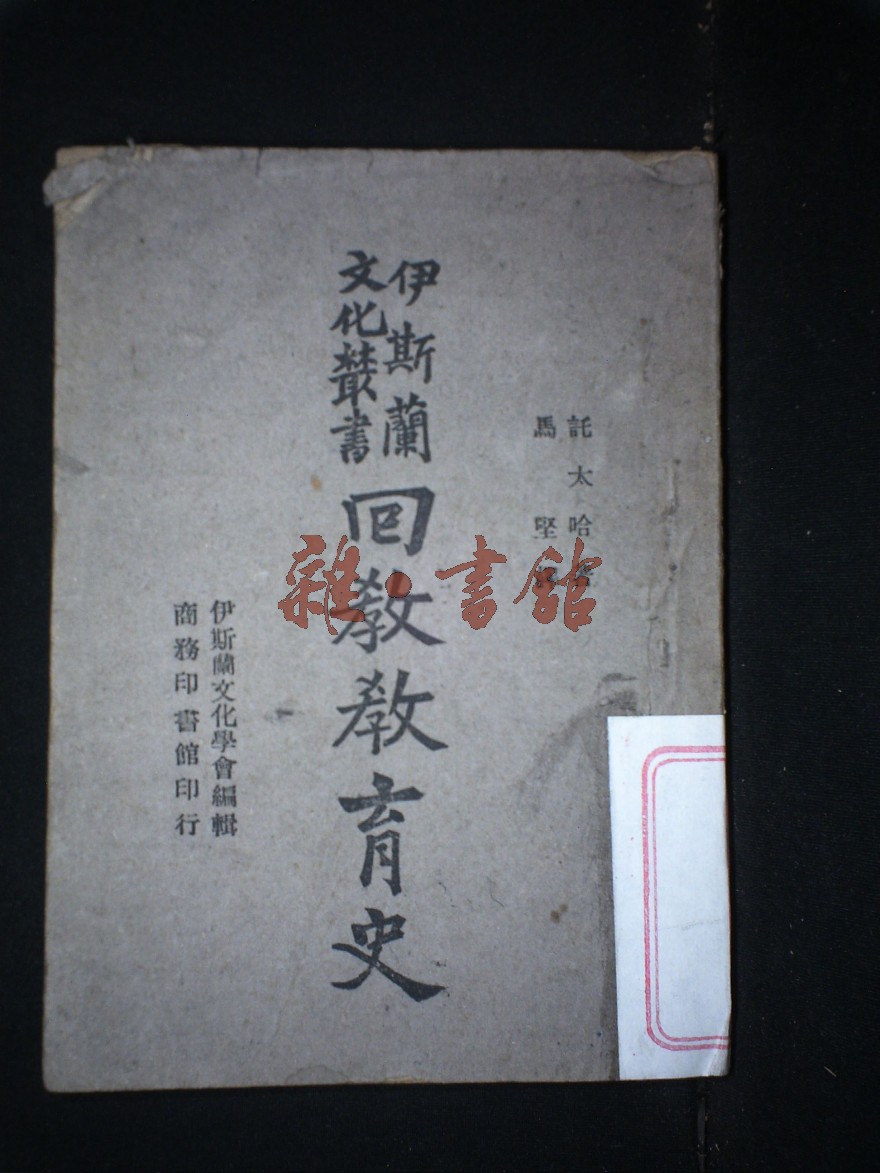 託太哈著
馬堅
伊斯蘭
文化叢書
回教教育史
伊斯蘭文化學會編輯
商務印書館印行
雜·書館